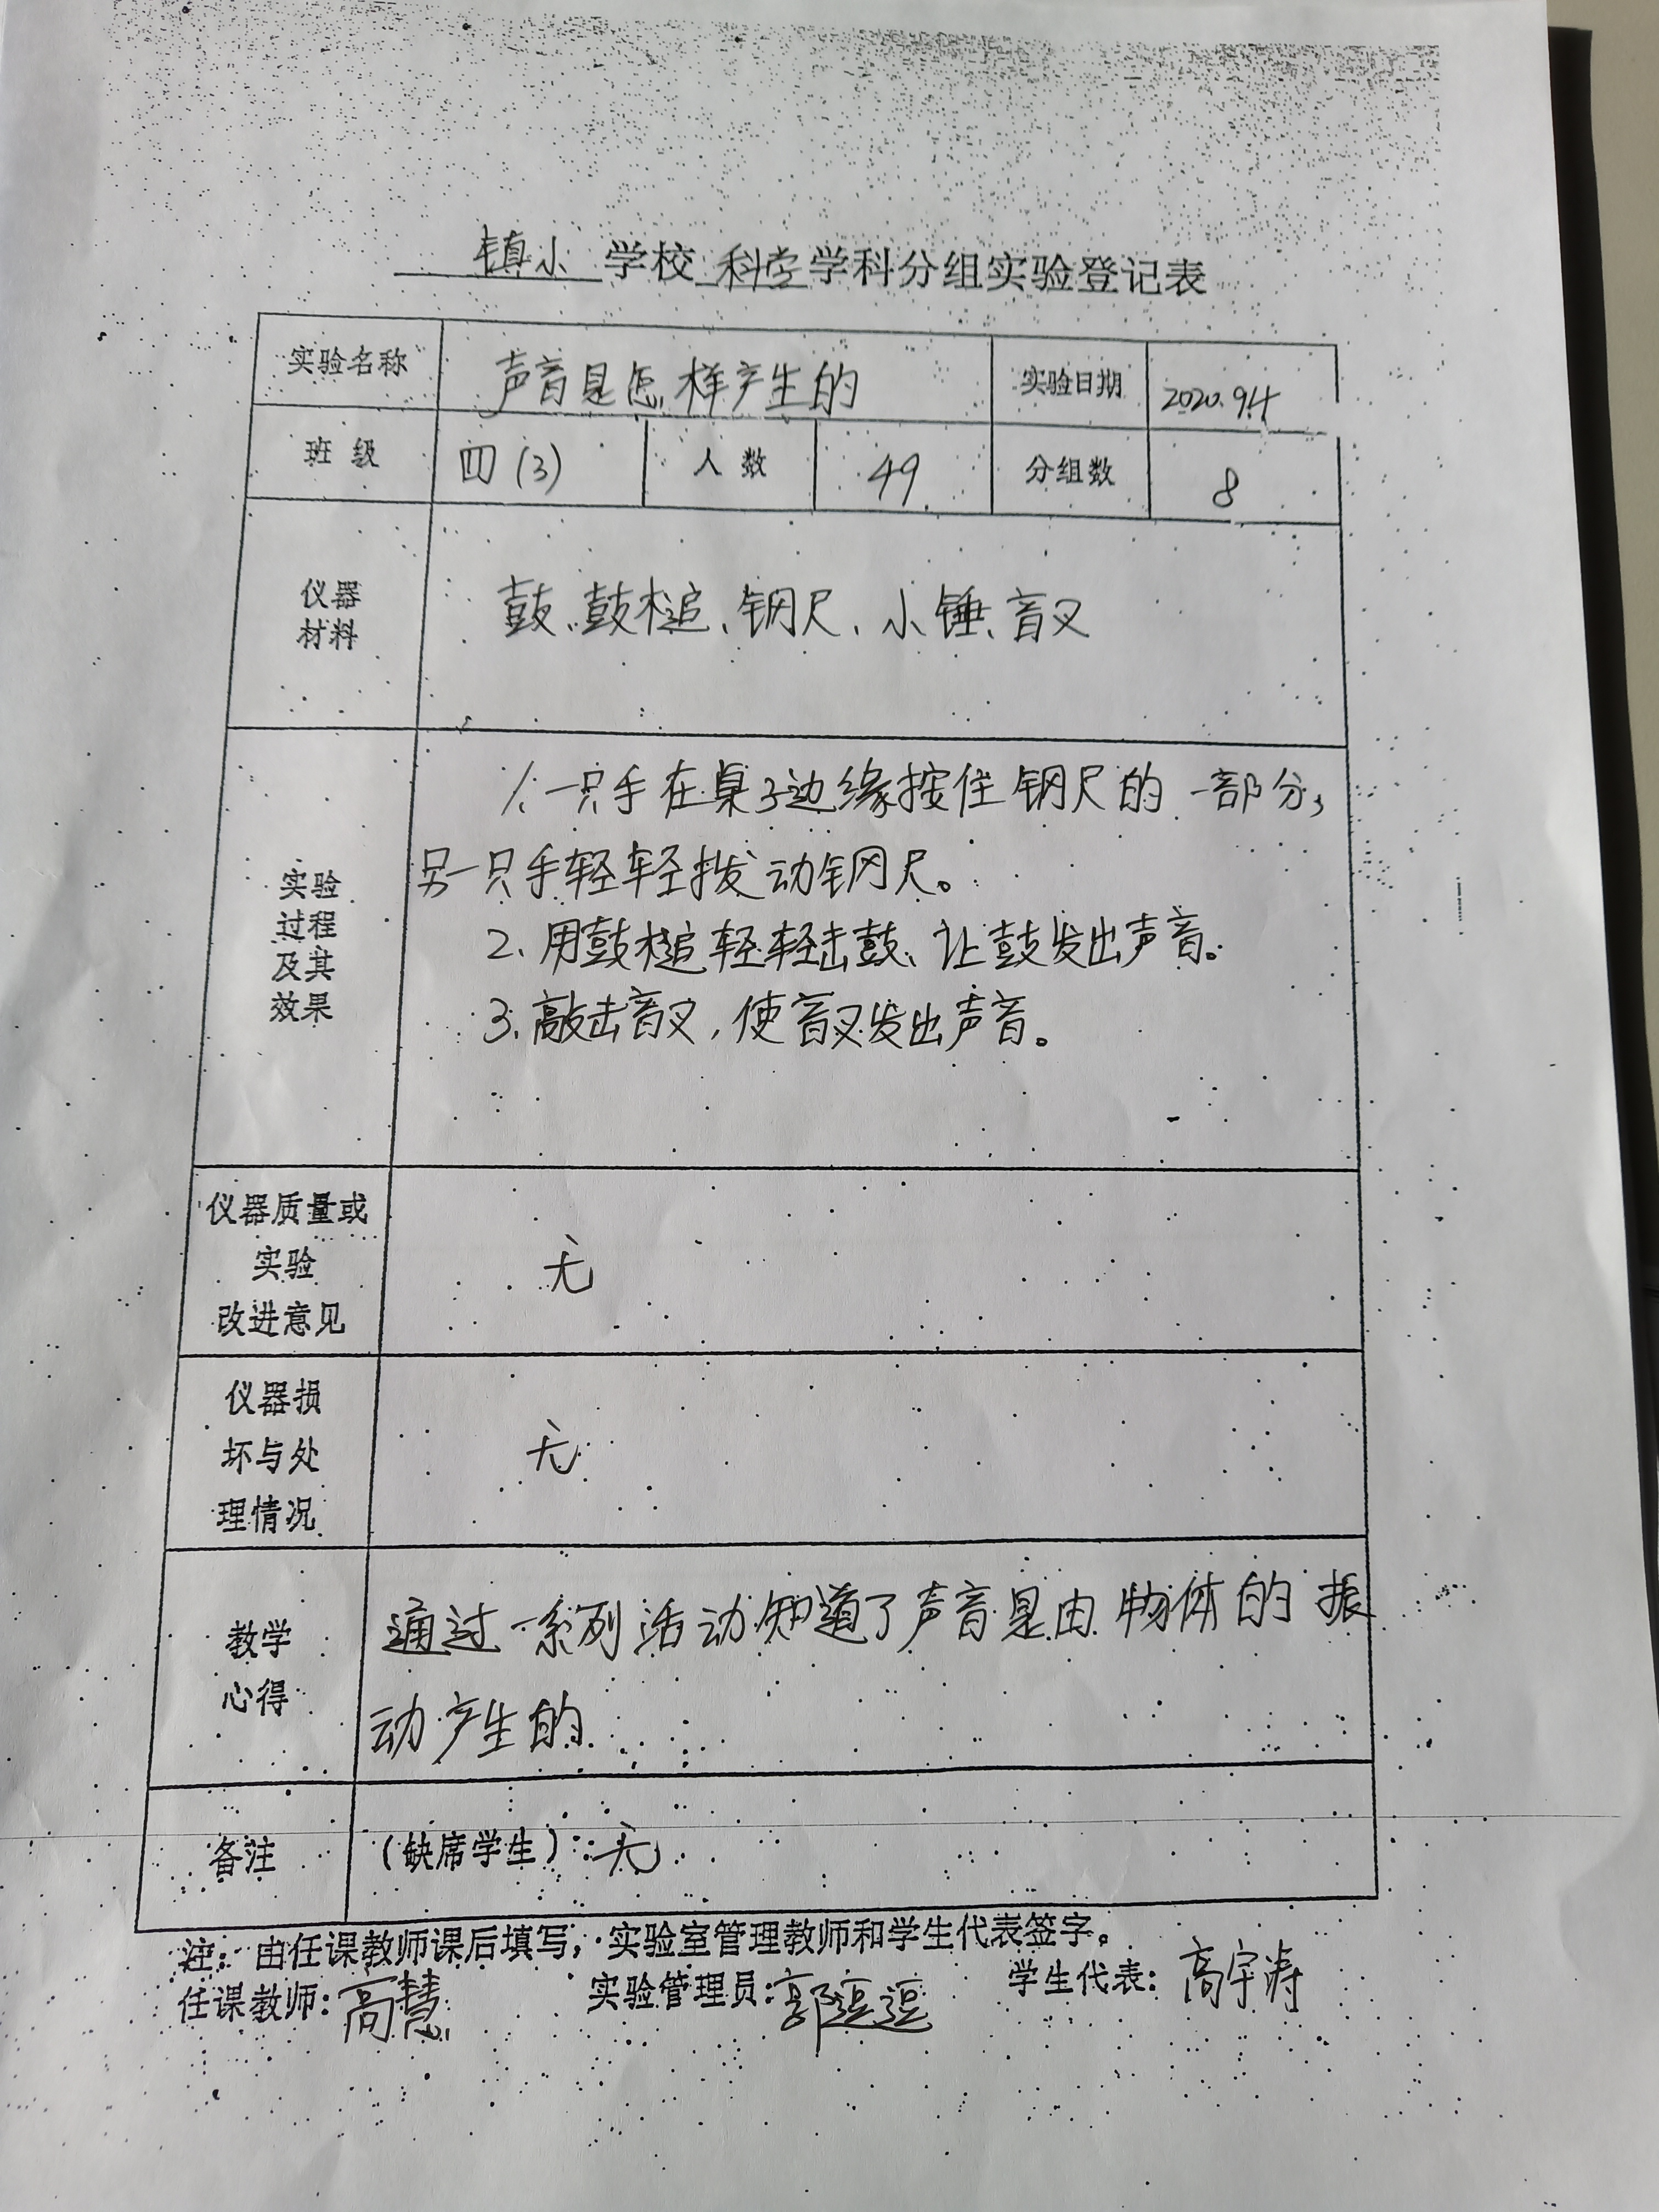 镇小 学校 科学 学科分组实验登记表
实验名称 声音是怎样产生的 实验日期 2020.9.4
班级 四(3) 人数 49 分组数 8
仪器
材料
鼓、鼓槌、钢尺、小锤、音叉
实验
过程
及其
效果
1.一只手在桌子边缘按住钢尺的一部分,
另一只手轻轻拨动钢尺。
2.用鼓槌轻轻击鼓、让鼓发出声音。
3.敲击音叉,使音叉发出声音。
仪器质量或
实验
改进意见
无
仪器损
坏与处
理情况
无
教学
心得
通过一系列活动知道了声音是由物体的振
动产生的
备注 (缺席学生):无
注:由任课教师课后填写,实验室管理教师和学生代表签字。
任课教师:高慧 实验管理员:郭逗逗 学生代表:高宇涛